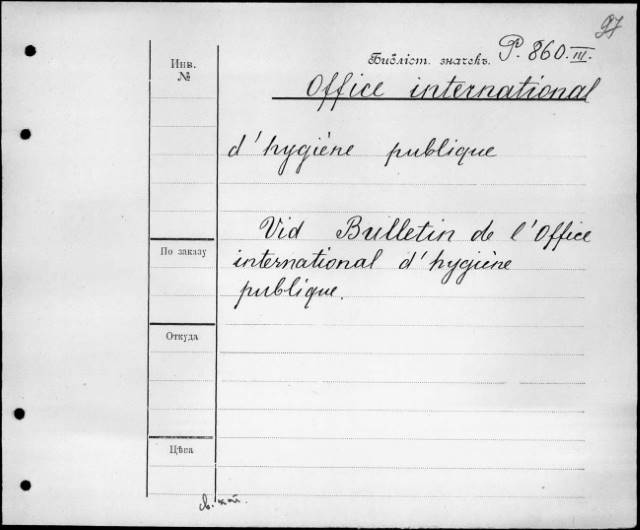 97
Библіот. значекъ. P. 860.III.
Инв.
№
Office international
d'hygiène publique
Vid Bulletin de l'Office
international d'hygiène
publique.
По заказу
Откуда
Цѣна